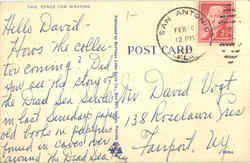 THIS SPACE FOR WRITING
Hello David-
Hows the collec-
tion coming? Did
you get the story of
the Dead Sea Scrolls
in last Sundays paper
old books in
found in caves near
around the Dead Sea
POST CARD
SAN ANTONIO
FEB
12 PM
Mr David Vogt
138 Roselawn Ave
Fairport, NY